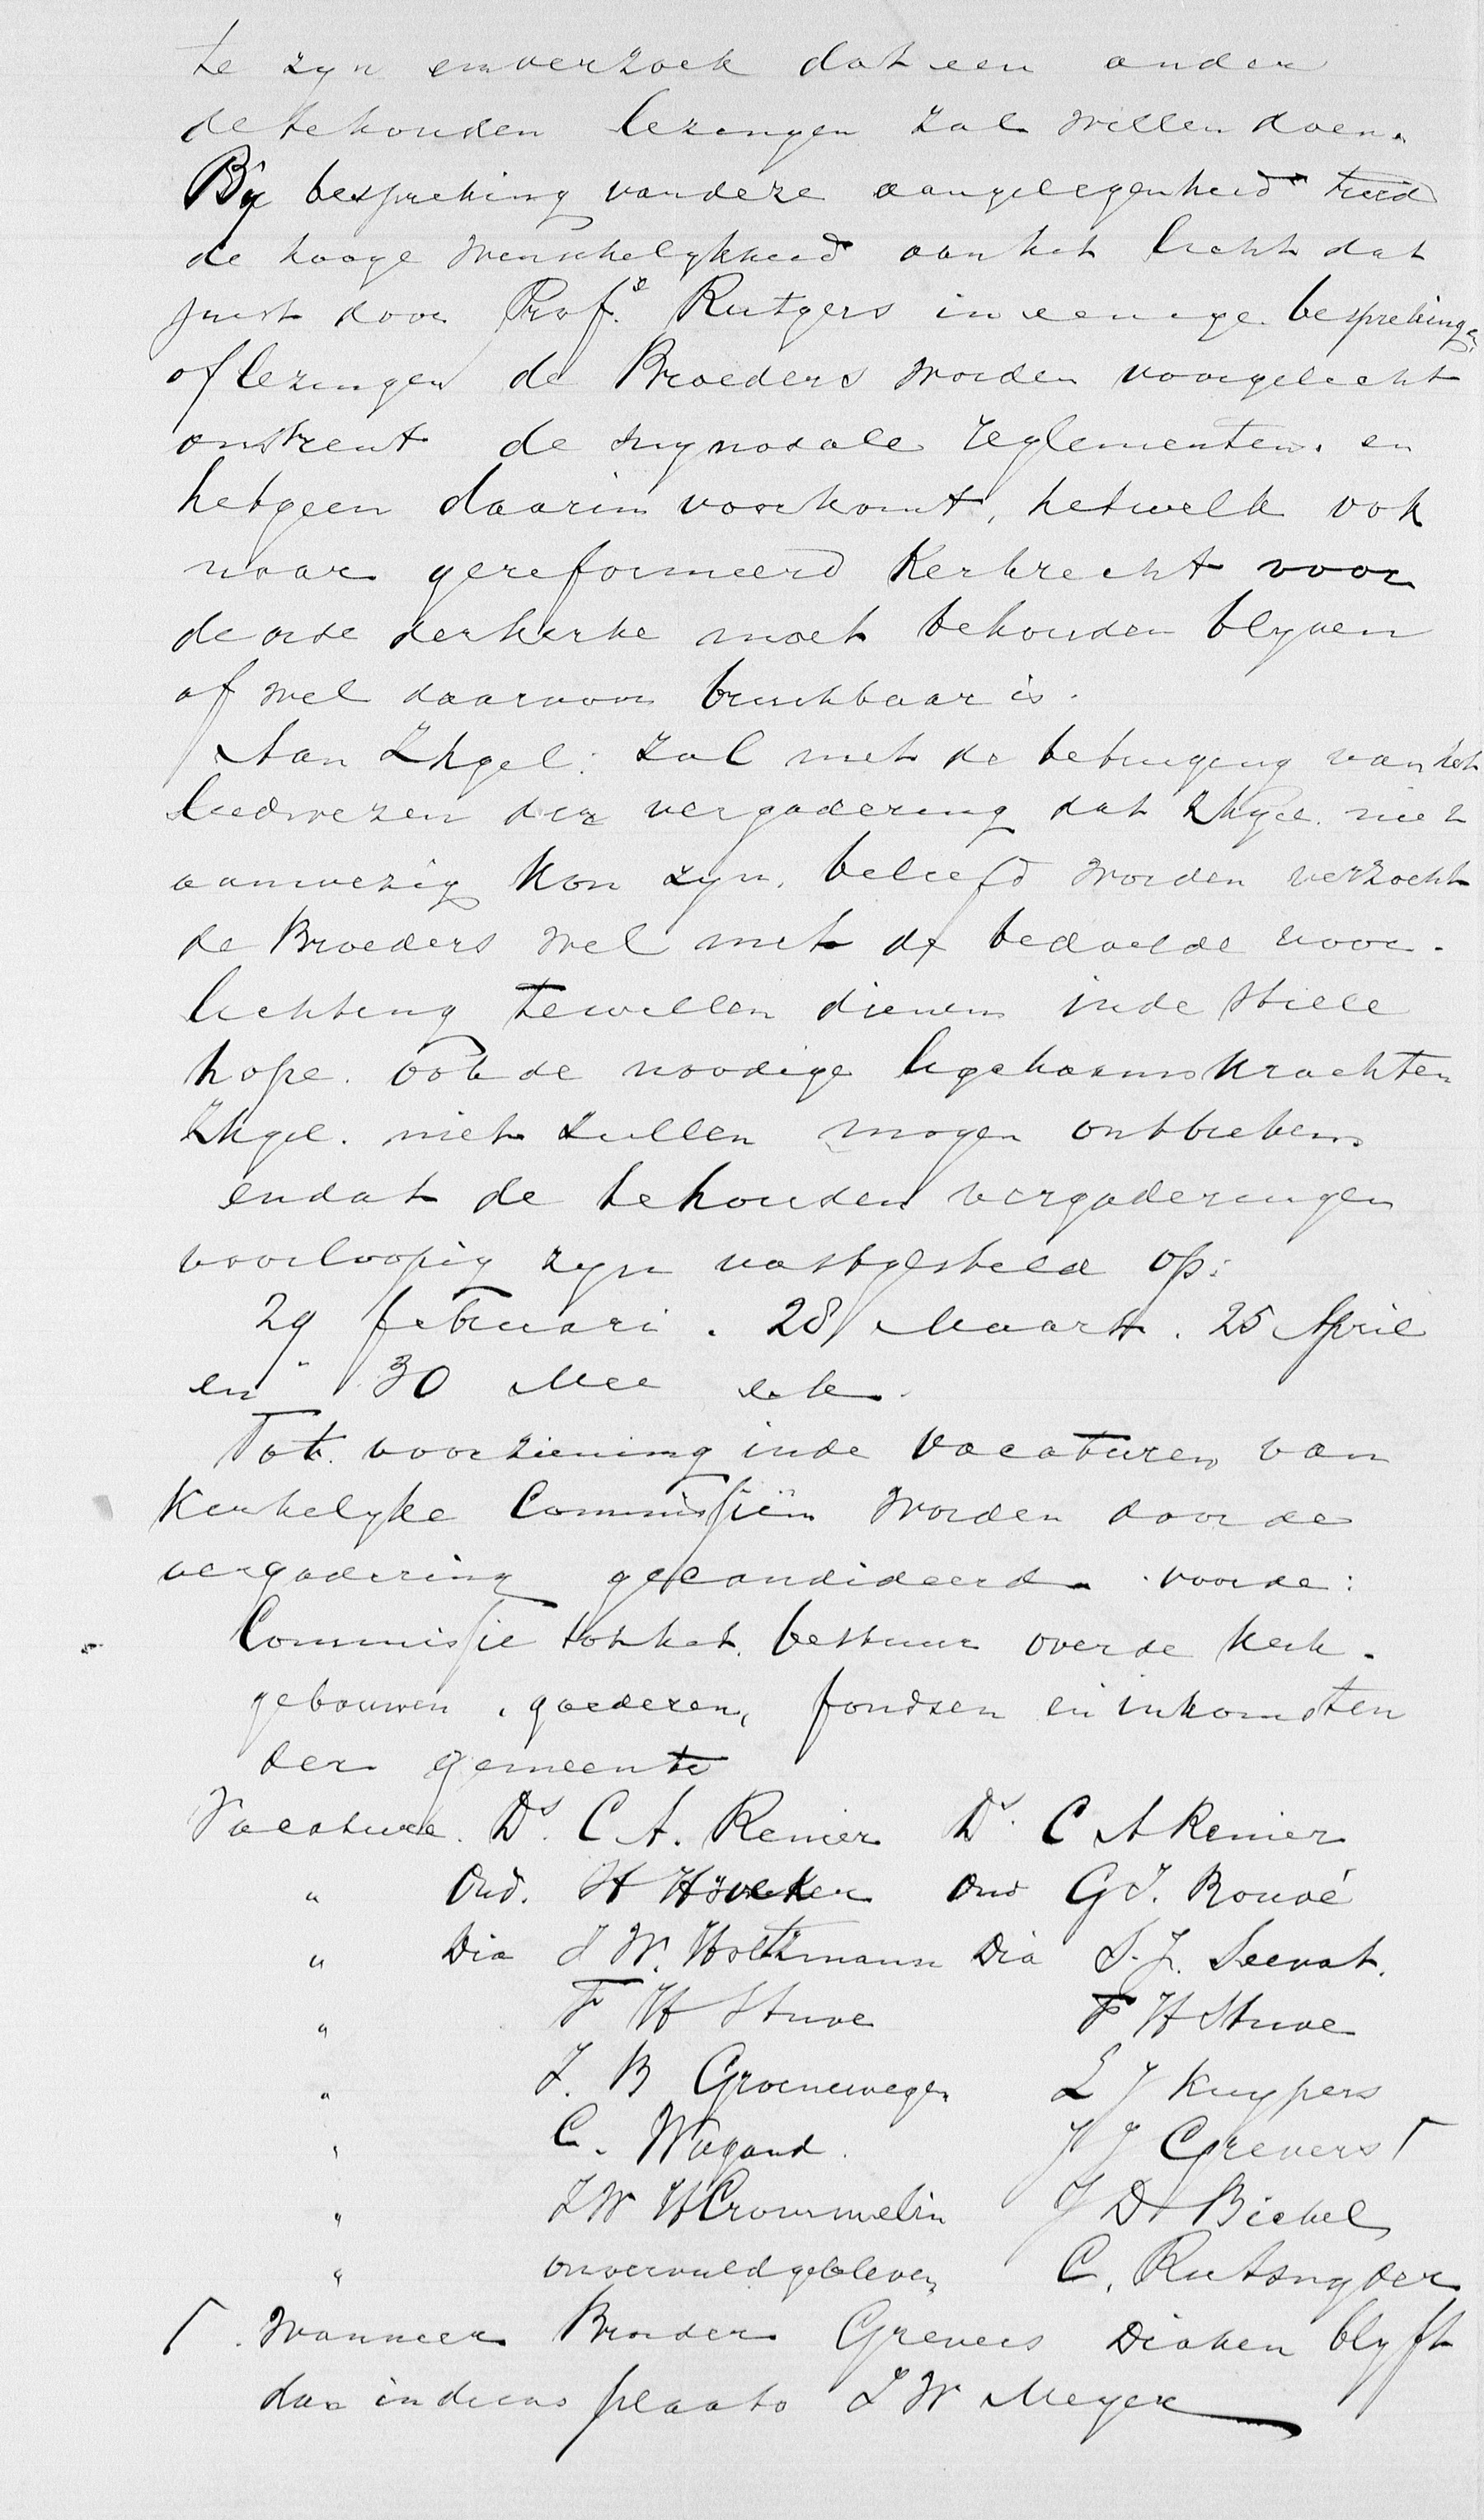 te zyn en verzoek dat een ander
de te houden lezingen zal willen doen.
By bespreking van deze aangelegenheid treed
de hooge wenschelykheid aan het licht dat
juist door Prof.r Rutgers in eenige besprekingen
of lezingen de Broeders worden voorgelicht
omtrent de synodale reglementen. en
hetgeen daarin voorkomt, hetwelk ook
naar gereformeerd Kerkrecht voor
de orde der kerke moet behouden blyven
of wel daarvoor bruikbaar is.
Aan ZHgel: zal met de betuiging van het
leedwezen der vergadering dat ZHgel. niet
aanwezig kon zyn, beleefd worden verzocht
de Broeders wel met de bedoelde voor-
lichting te willen dienen in de stille
hope. dat de noodige ligchaamskrachten
ZHgel. niet zullen mogen ontbreken
en dat de te houden vergaderingen
voorloopig zyn vastgesteld op:
29 februari. 28 Maart. 25 April
en 30 Mei e.k.
Tot voorziening in de vacaturen van
Kerkelyke Commissiën worden door de
vergadering gecandideerd voor de:
Commissie tot het bestuur over de Kerk-
gebouwen, goederen, fondsen en inkomsten
der gemeente
Vacature. Ds. C A. Renier Ds. C A Renier
" Oud. H Höveker Oud G J. Rouvé
" Dia J W. Holtzmann Dia S. J. Seevat.
" F H Stuve F H Stuve
" J. B Groenewegen L J Kuypers
" C. Wiegand. J J Grevers Γ
" J W H Crommelin J D Bickel
" onvervuld gebleven C. Rutsnyder
Γ. Wanneer Broeder Grevers Diaken blyft
dan in diens plaats J W Meyer